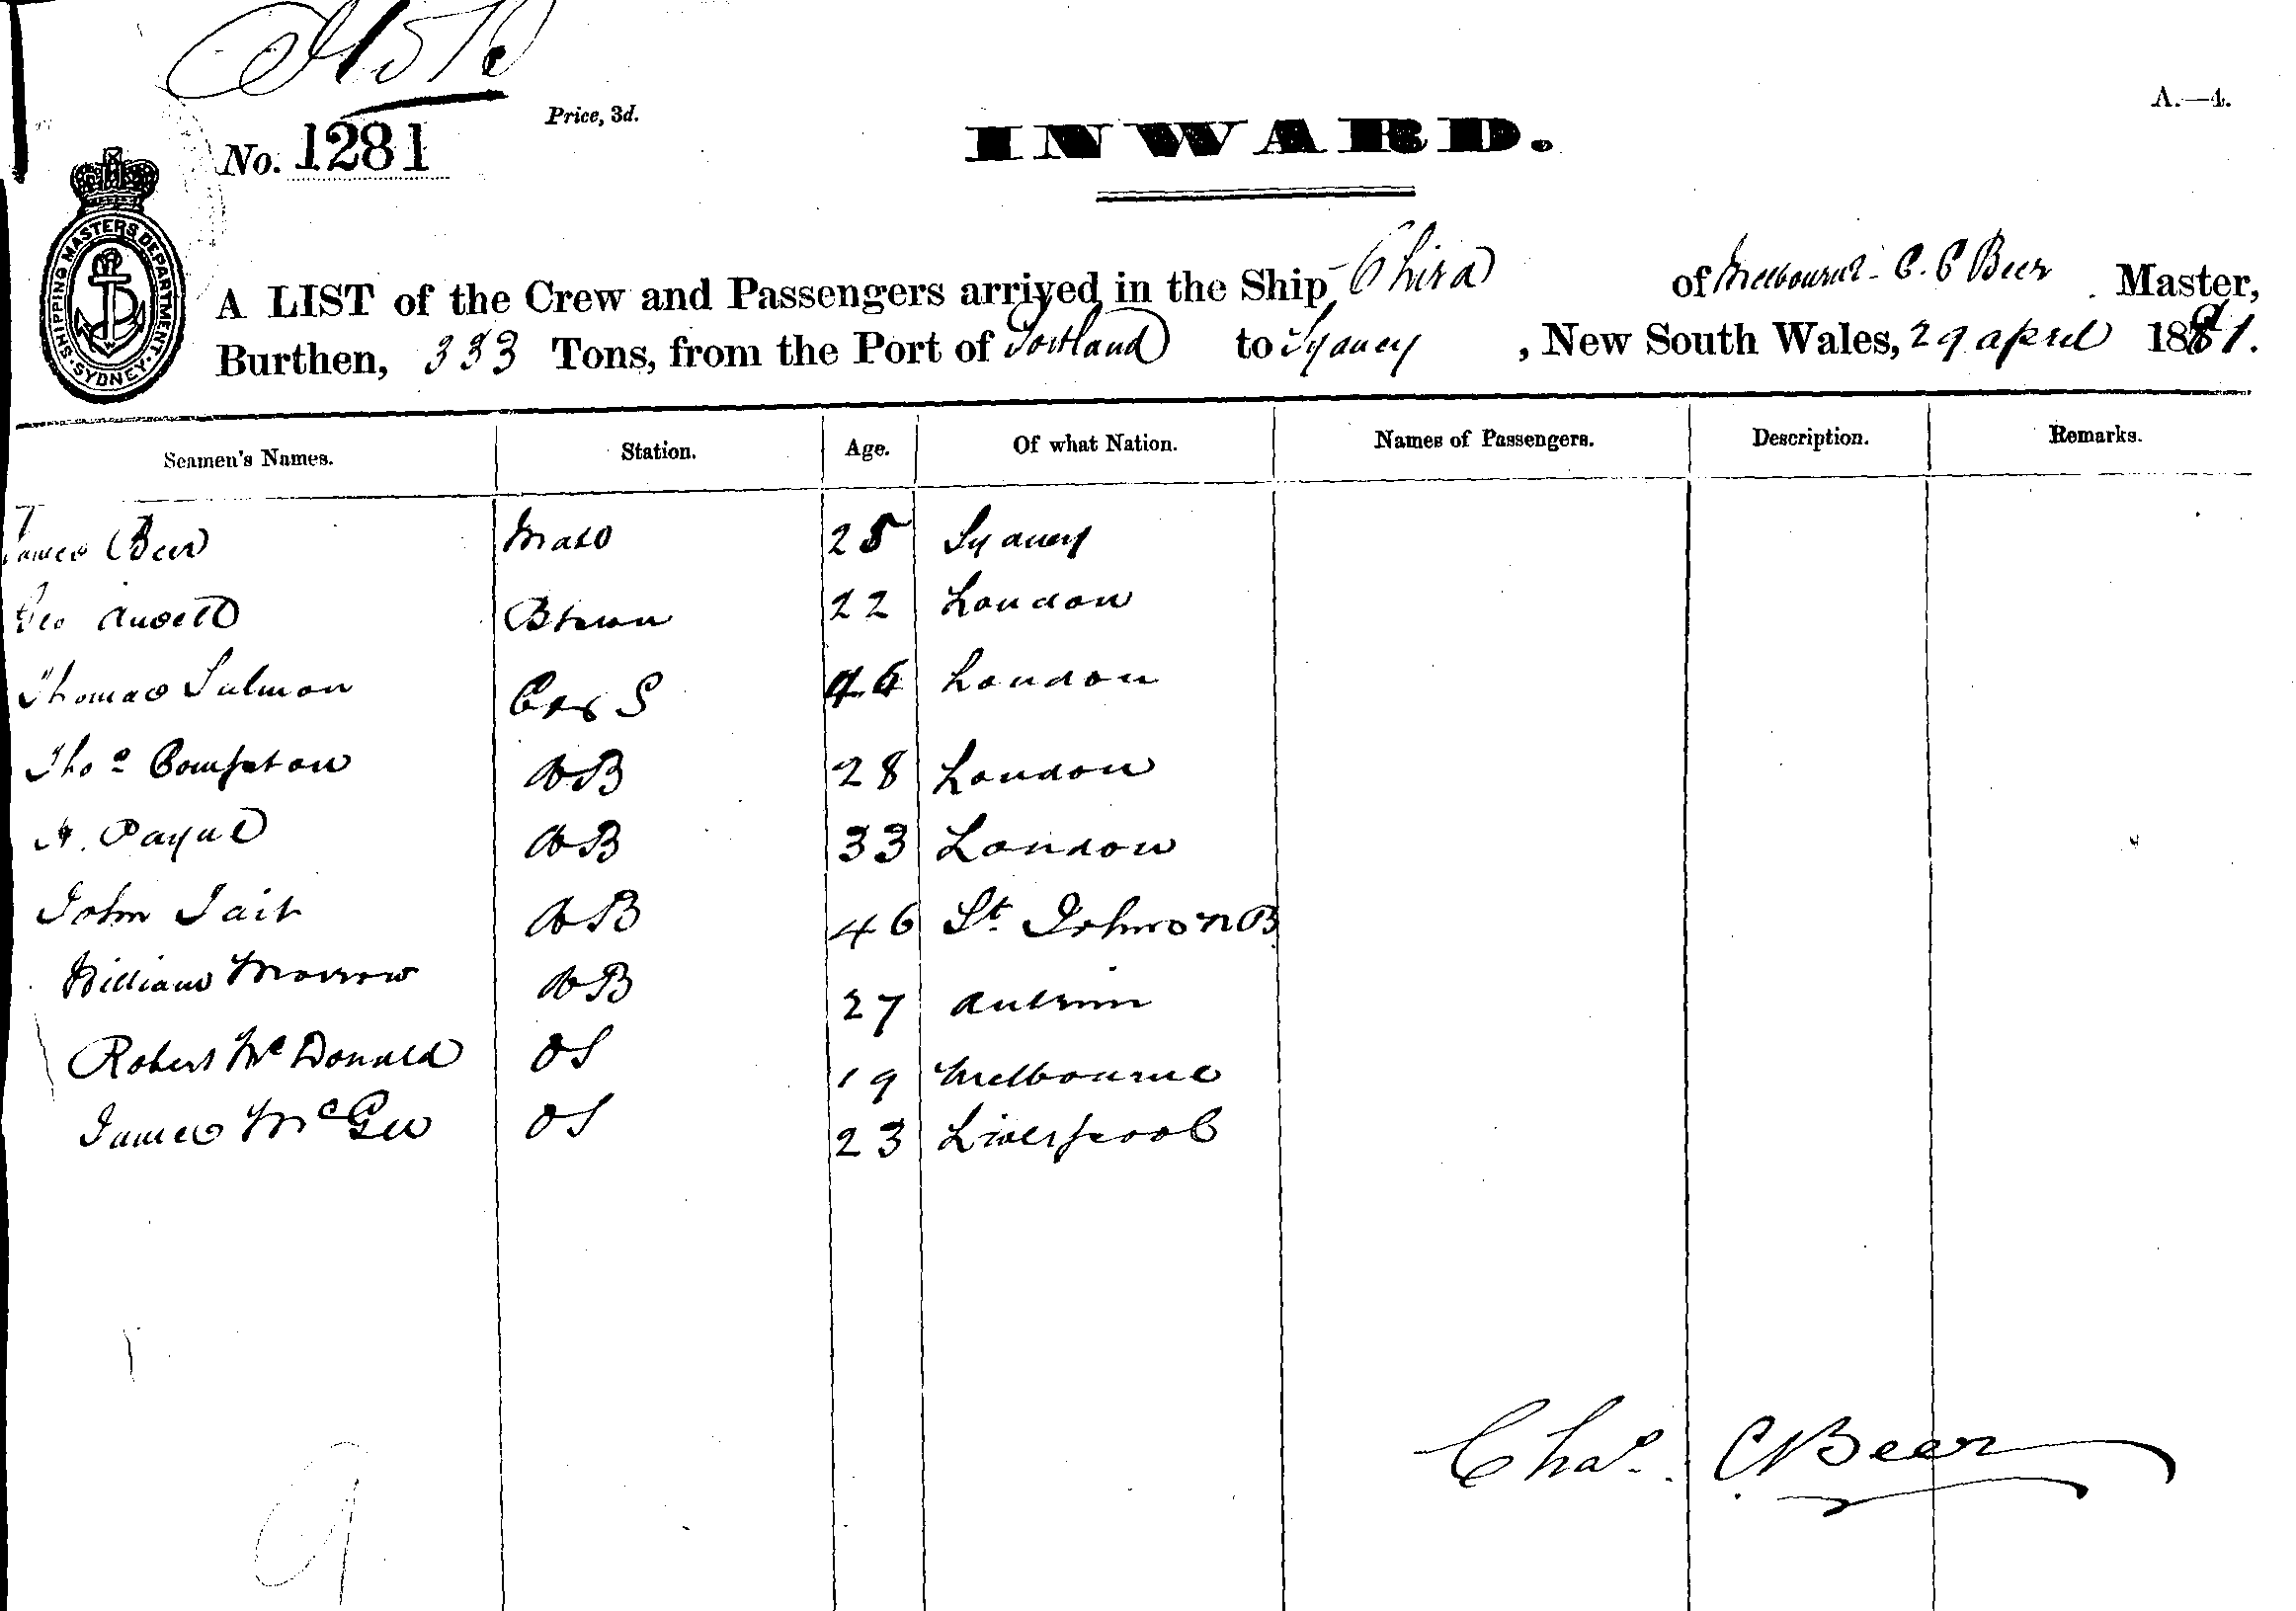 Price, 3d.
A.—4.
No. 1281
INWARD.
SHIPPING MASTERS DEPARTMENT. SYDNEY.
A LIST of the Crew and Passengers arrived in the Ship Chira of Melbourne - C. C Beer Master,
Burthen, 333 Tons, from the Port of Portland to Sydney, New South Wales, 29 april 1881.
Seamen's Names. Station. Age. Of what Nation. Names of Passengers. Description. Remarks.
James Beer Mate 25 Sydney
Geo 22 London
Thomas Salmon 46 London
Thos Compton AB 28 London
Payne AB 33 London
John Tait AB 46 St. Johns NB
William Morrow AB 27 Antrim
Robert McDonald OS 19 Melbourne
James McGee OS 23 Liverpool
Chas. C. Beer
9